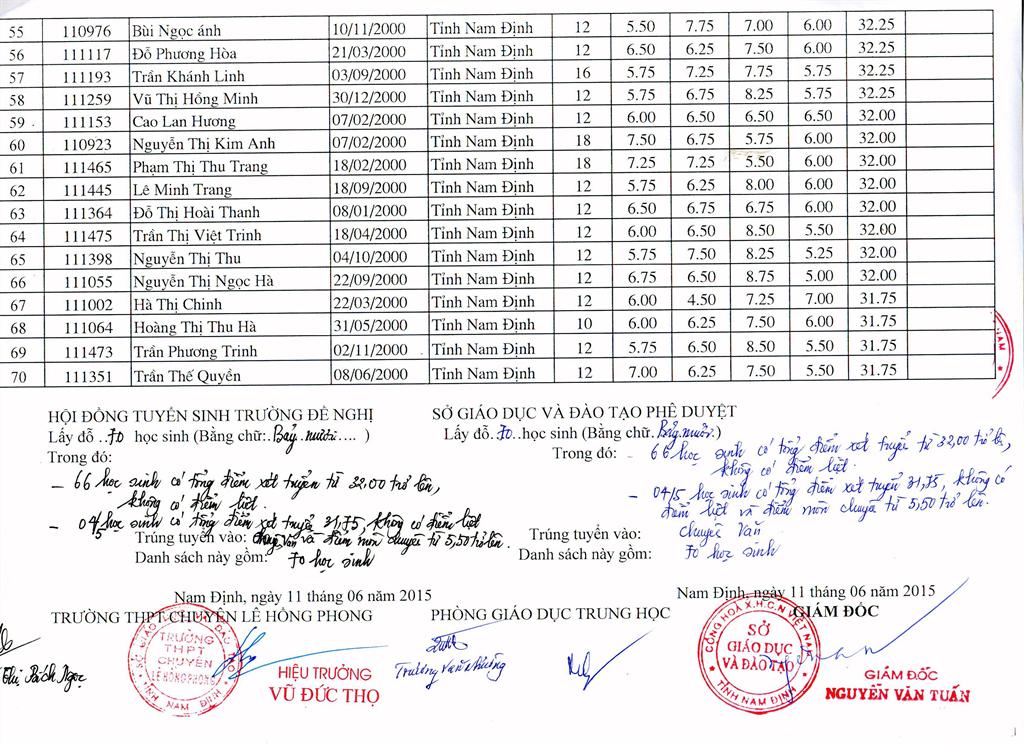 55 110976 Bùi Ngọc ánh 10/11/2000 Tỉnh Nam Định 12 5.50 7.75 7.00 6.00 32.25
56 111117 Đỗ Phương Hòa 21/03/2000 Tỉnh Nam Định 12 6.50 6.25 7.50 6.00 32.25
57 111193 Trần Khánh Linh 03/09/2000 Tỉnh Nam Định 16 5.75 7.25 7.75 5.75 32.25
58 111259 Vũ Thị Hồng Minh 30/12/2000 Tỉnh Nam Định 12 5.75 6.75 8.25 5.75 32.25
59 111153 Cao Lan Hương 07/02/2000 Tỉnh Nam Định 12 6.00 6.50 6.50 6.50 32.00
60 110923 Nguyễn Thị Kim Anh 07/02/2000 Tỉnh Nam Định 18 7.50 6.75 5.75 6.00 32.00
61 111465 Phạm Thị Thu Trang 18/02/2000 Tỉnh Nam Định 18 7.25 7.25 5.50 6.00 32.00
62 111445 Lê Minh Trang 18/09/2000 Tỉnh Nam Định 12 5.75 6.25 8.00 6.00 32.00
63 111364 Đỗ Thị Hoài Thanh 08/01/2000 Tỉnh Nam Định 12 6.50 6.75 6.75 6.00 32.00
64 111475 Trần Thị Việt Trinh 18/04/2000 Tỉnh Nam Định 12 6.00 6.50 8.50 5.50 32.00
65 111398 Nguyễn Thị Thu 04/10/2000 Tỉnh Nam Định 12 5.75 7.50 8.25 5.25 32.00
66 111055 Nguyễn Thị Ngọc Hà 22/09/2000 Tỉnh Nam Định 12 6.75 6.50 8.75 5.00 32.00
67 111002 Hà Thị Chinh 22/03/2000 Tỉnh Nam Định 12 6.00 4.50 7.25 7.00 31.75
68 111064 Hoàng Thị Thu Hà 31/05/2000 Tỉnh Nam Định 10 6.00 6.25 7.50 6.00 31.75
69 111473 Trần Phương Trinh 02/11/2000 Tỉnh Nam Định 12 5.75 6.50 8.50 5.50 31.75
70 111351 Trần Thế Quyền 08/06/2000 Tỉnh Nam Định 12 7.00 6.25 7.50 5.50 31.75
HỘI ĐỒNG TUYỂN SINH TRƯỜNG ĐỀ NGHỊ
Lấy đỗ ..70 học sinh (Bằng chữ:.Bảy mươi.... )
Trong đó:
- 66 học sinh có tổng điểm xét tuyển từ 32,00 trở lên,
không có điểm liệt.
- 04/5 học sinh có tổng điểm xét tuyển 31,75, không có điểm liệt
Trúng tuyển vào: chuyên Văn và điểm môn chuyên từ 5,50 trở lên.
Danh sách này gồm: 70 học sinh
SỞ GIÁO DỤC VÀ ĐÀO TẠO PHÊ DUYỆT
Lấy đỗ.70..học sinh (Bằng chữ.Bảy mươi.)
Trong đó: - 66 học sinh có tổng điểm xét tuyển từ 32,00 trở lên,
không có điểm liệt.
- 04/5 học sinh có tổng điểm xét tuyển 31,75, không có
điểm liệt và điểm môn chuyên từ 5,50 trở lên.
Trúng tuyển vào: chuyên Văn
Danh sách này gồm: 70 học sinh
Nam Định, ngày 11 tháng 06 năm 2015
TRƯỜNG THPT CHUYÊN LÊ HỒNG PHONG
TRƯỜNG
THPT
CHUYÊN
LÊ HỒNG PHONG
NAM ĐỊNH
HIỆU TRƯỞNG
VŨ ĐỨC THỌ
Bích Ngọc
PHÒNG GIÁO DỤC TRUNG HỌC
Nam Định, ngày 11 tháng 06 năm 2015
GIÁM ĐỐC
CỘNG HOÀ X.H.C.N VIỆT NAM
SỞ
GIÁO DỤC
VÀ ĐÀO TẠO
TỈNH NAM ĐỊNH
GIÁM ĐỐC
NGUYỄN VĂN TUẤN
NAM